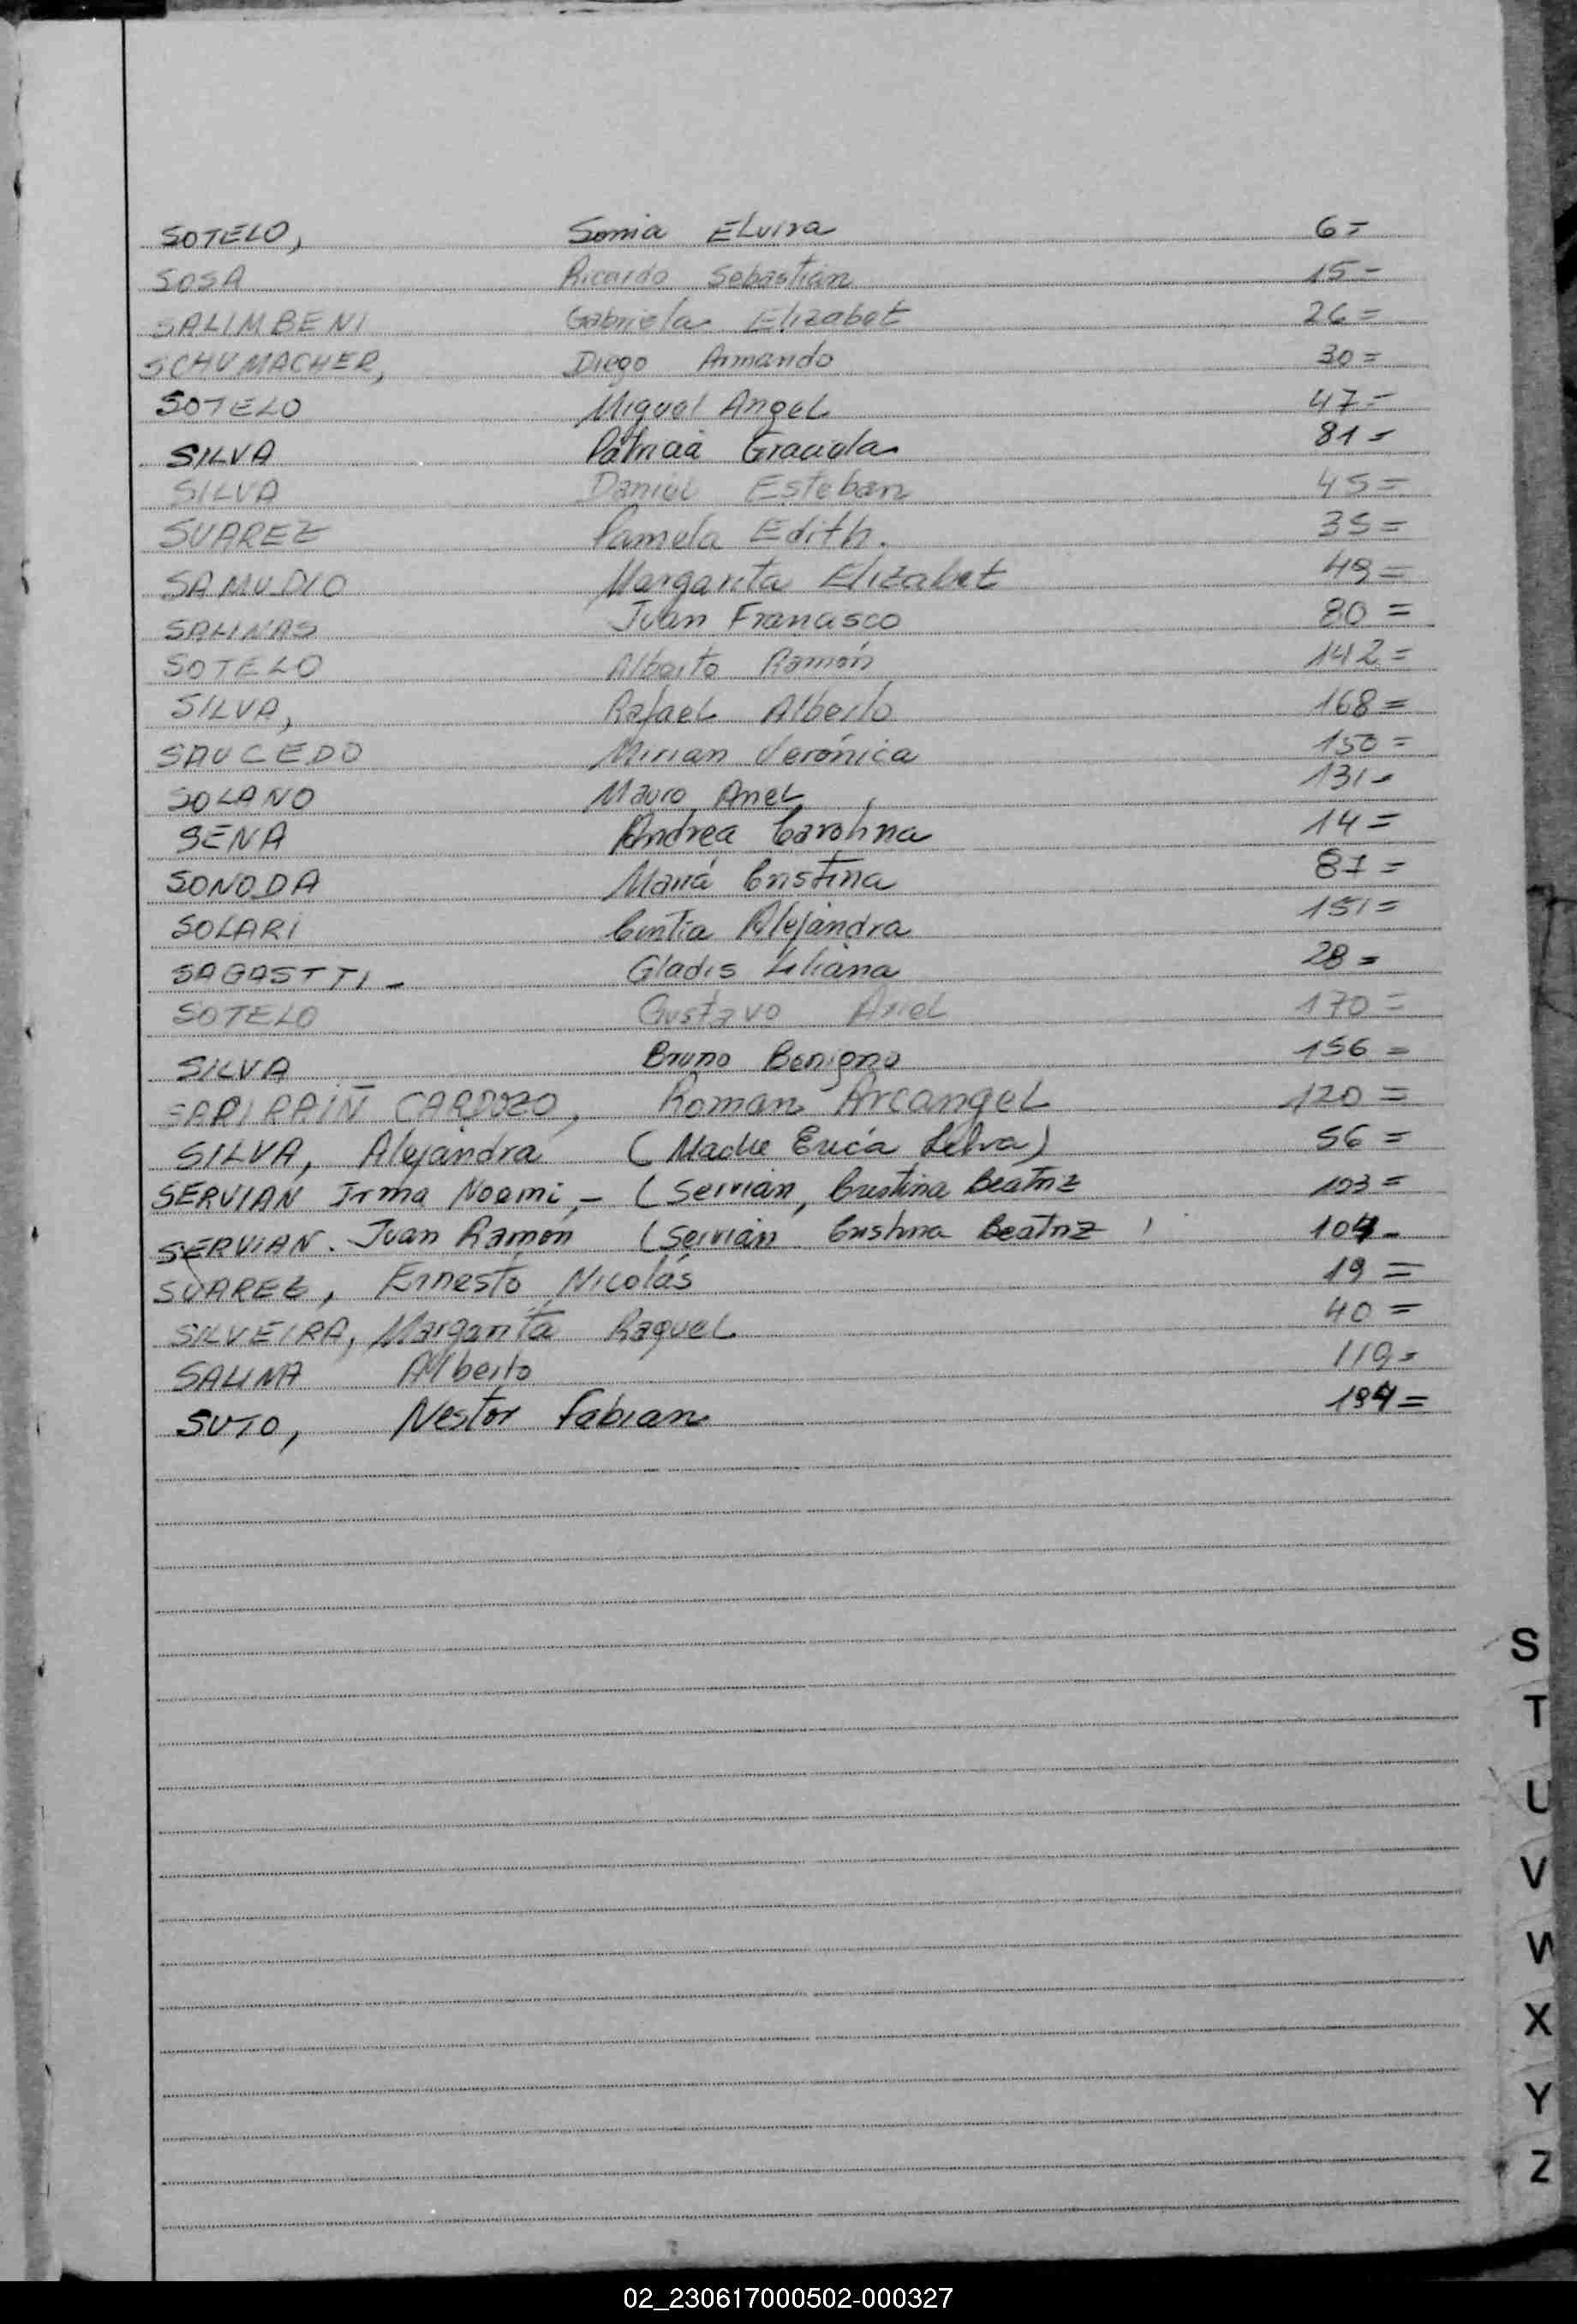 SOTELO, Sonia ELvira 6=
SOSA Ricardo Sebastián 15=
SALIMBENI Gabriela Elizabet 26=
SCHUMACHER, Diego Armando 30=
SOTELO Miguel Angel 47=
SILVA Patricia Graciela 81=
SILVA Daniel Esteban 45=
SUAREZ Pamela Edith. 35=
SAMUDIO Margarita Elizabet 49=
SALINAS Juan Francisco 80=
SOTELO Alberto Ramón 142=
SILVA, Rafael Alberto 168=
SAUCEDO Mirian Verónica 150=
SOLANO Mauro Ariel 131=
SENA Andrea Carolina 14=
SONODA María Cristina 87=
SOLARI Cintia Alejandra 151=
SAGASTTI - Gladis Liliana 28=
SOTELO Gustavo Ariel 170=
SILVA Bruno Benigno 156=
CARDOZO, Roman Arcangel 120=
SILVA, Alejandra (Madre Erica Silva) 56=
SERVIAN Irma Noemi, - (Servian, Cristina Beatriz 103=
SERVIAN. Juan Ramón (Servian Cristina Beatriz ) 104-
SUAREZ, Ernesto Nicolás 19=
SILVEIRA, Margarita Raquel 40=
SALINA Alberto 119=
SUTO, Nestor Fabian 194=
S
T
U
V
W
X
Y
Z
02_230617000502-000327